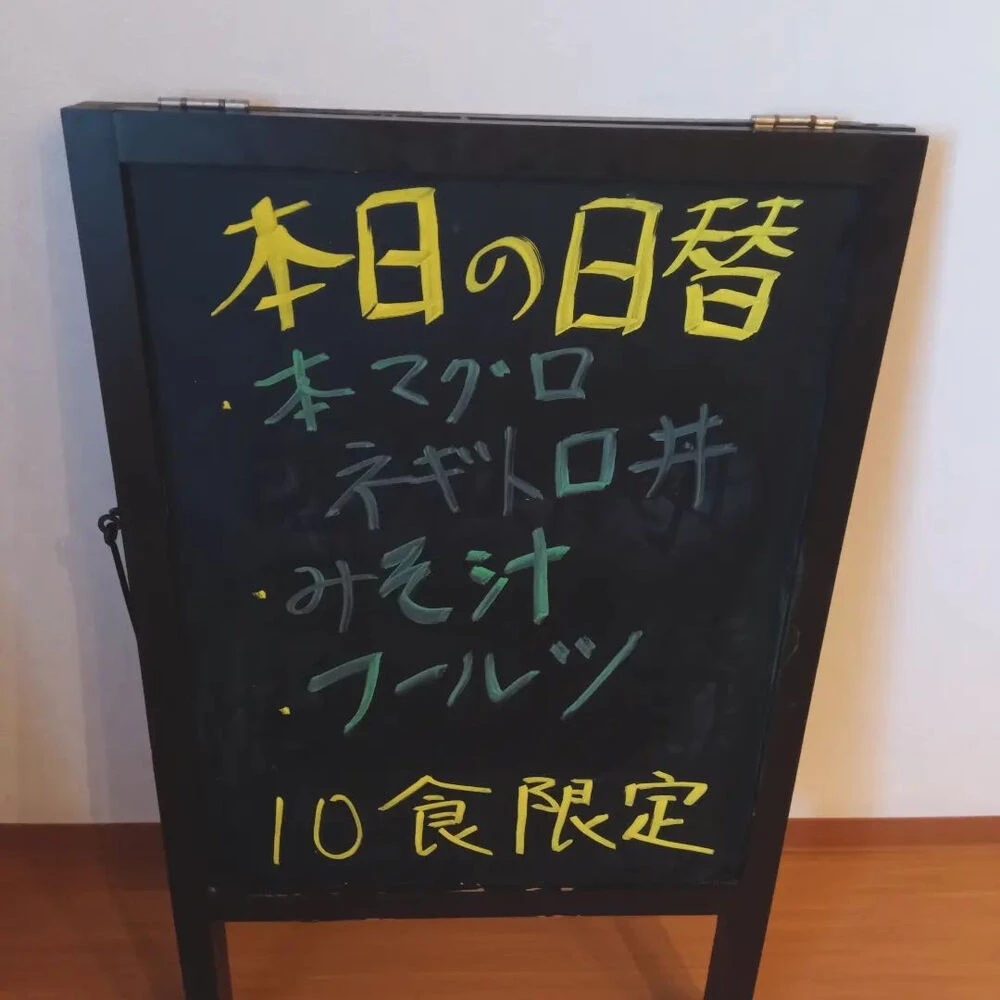 本日の日替
・本マグロ
ネギトロ丼
・みそ汁
・フールツ
10食限定